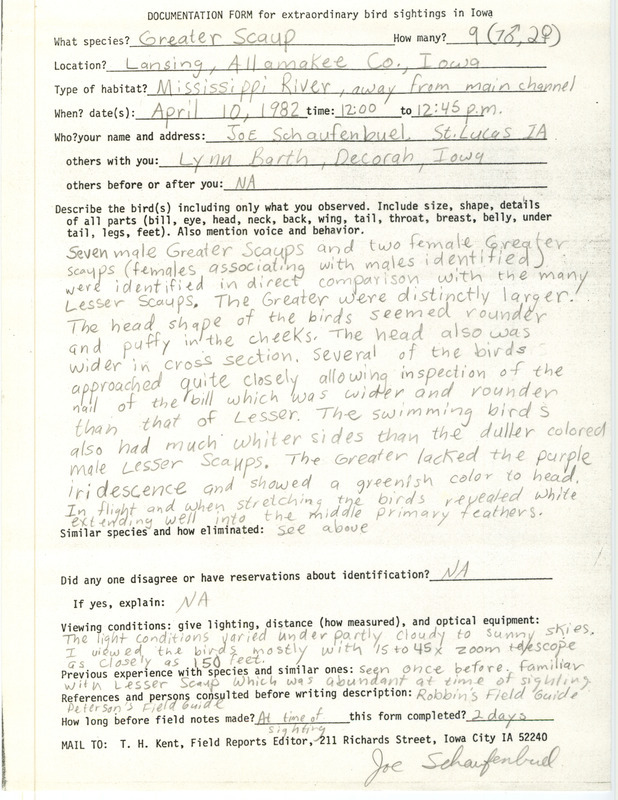 DOCUMENTATION FORM for extraordinary bird sightings in Iowa
What species? Greater Scaup How many? 9 (7♂, 2♀)
Location? Lansing, Allamakee Co., Iowa
Type of habitat? Mississippi River, away from main channel
When? date(s): April 10, 1982 time: 12:00 to 12:45 p.m.
Who?your name and address: Joe Schaufenbuel St. Lucas IA
others with you: Lynn Barth, Decorah, Iowa
others before or after you: NA
Describe the bird(s) including only what you observed. Include size, shape, details
of all parts (bill, eye, head, neck, back, wing, tail, throat, breast, belly, under
tail, legs, feet). Also mention voice and behavior.
Seven male Greater Scaups and two female Greater
scaups (females associating with males identified)
were identified in direct comparison with the many
Lesser Scaups. The Greater were distinctly larger.
The head shape of the birds seemed rounder
and puffy in the cheeks. The head also was
wider in cross section. Several of the birds
approached quite closely allowing inspection of the
nail of the bill which was wider and rounder
than that of Lesser. The swimming birds
also had much whiter sides than the duller colored
male Lesser Scaups. The Greater lacked the purple
iridescence and showed a greenish color to head.
In flight and when stretching the birds revealed white
extending well into the middle primary feathers.
Similar species and how eliminated: see above
Did any one disagree or have reservations about identification? NA
If yes, explain: NA
Viewing conditions: give lighting, distance (how measured), and optical equipment:
The light conditions varied under partly cloudy to sunny skies.
I viewed the birds mostly with 15 to 45x zoom telescope
as closely as 150 feet.
Previous experience with species and similar ones: Seen once before. Familiar
with Lesser Scaup which was abundant at time of sighting.
References and persons consulted before writing description: Robbin's Field Guide,
Peterson's Field Guide
How long before field notes made? At time of sighting this form completed? 2 days
MAIL TO: T. H. Kent, Field Reports Editor, 211 Richards Street, Iowa City IA 52240
Joe Schaufenbuel